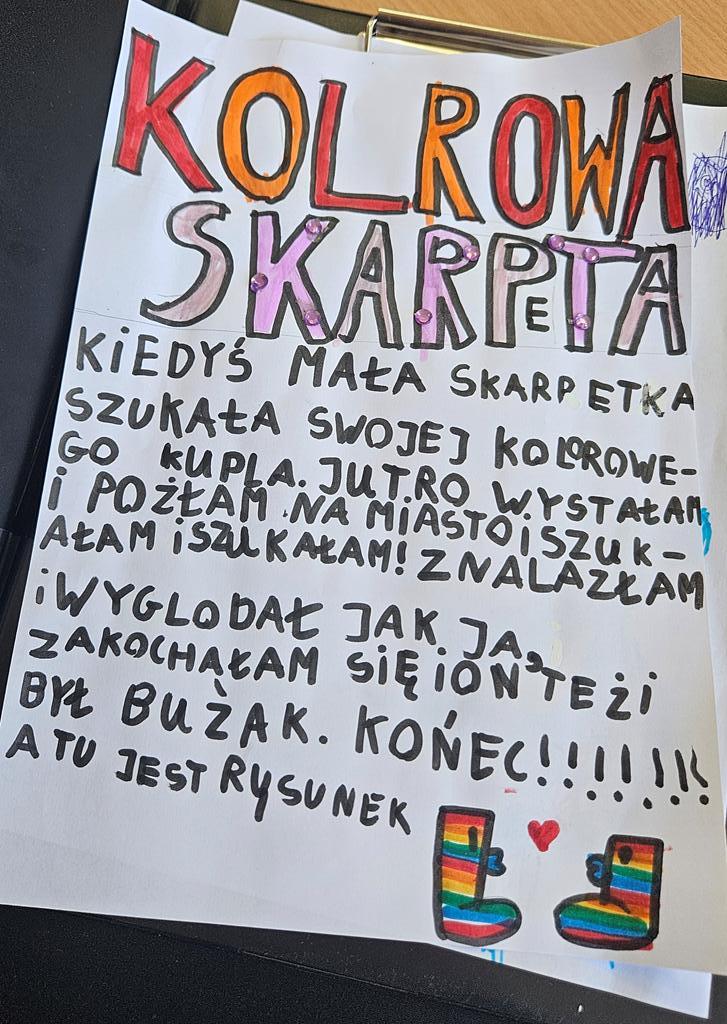 KOLROWA
SKARPETA
KIEDYŚ MAŁA SKARPETKA
SZUKAŁA SWOJEJ KOLOROWE-
GO KUPLA. JUTRO WYSTAŁAM
I POŻŁAM NA MIASTO I SZUK-
AŁAM i SZUKAŁAM! ZNALAZŁAM
i WYGLODAŁ JAK JA,
ZAKOCHAŁAM SIĘ I ON TEŻ i
BYŁ BUŻAK. KOŃEC!!!!!!!!
A TU JEST RYSUNEK